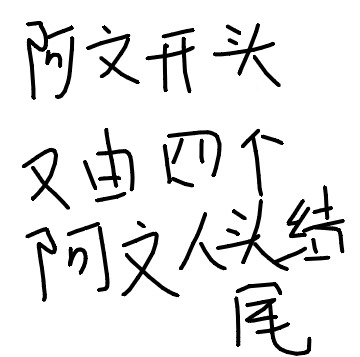 阿文开头
又由四个
阿文人头结
尾